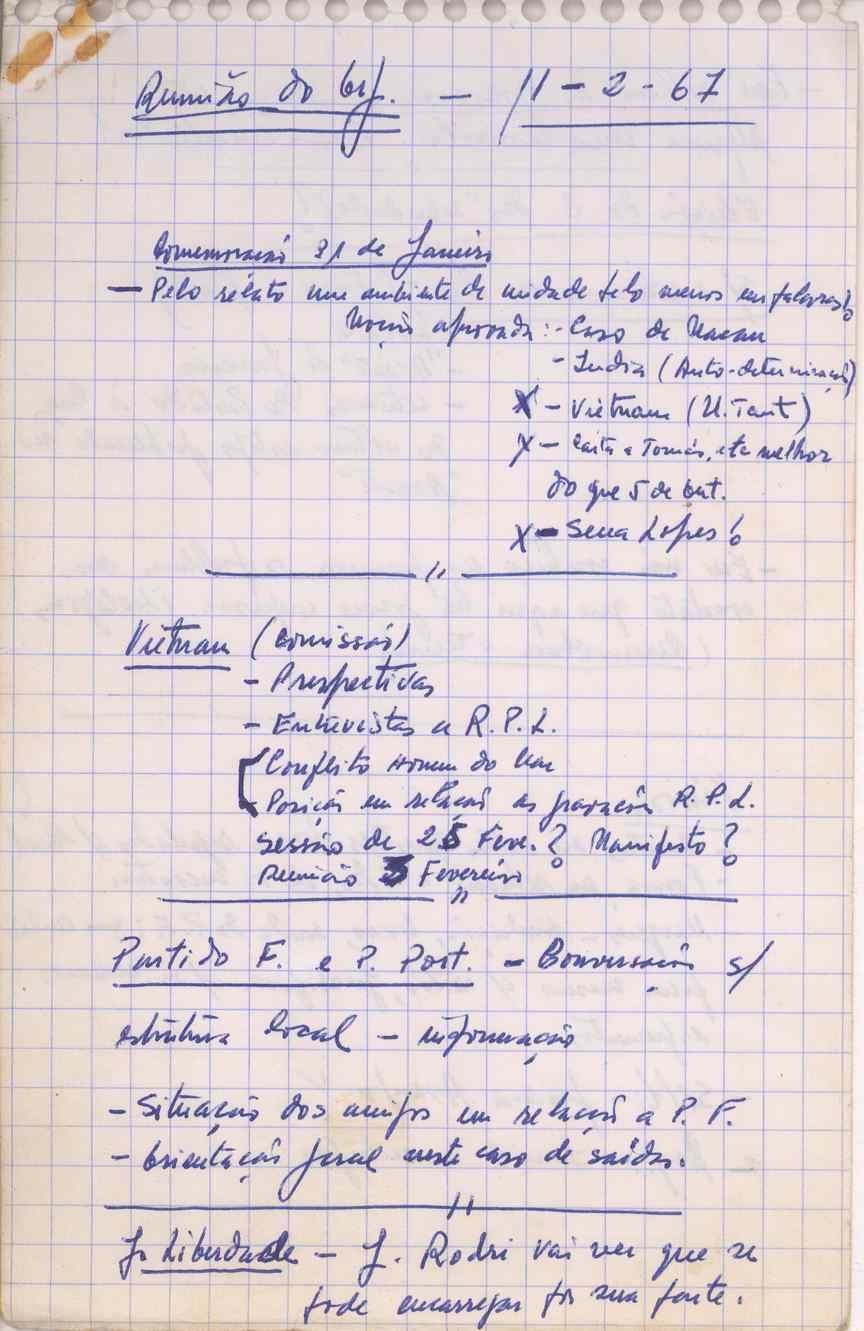 Reunião do Org. — 11-2-67
Comemoração 31 de Janeiro
— Pelo relato um ambiente de unidade pelo menos em palavras!
Moção aprovada: - Caso de Macau
- India (Auto-determinação)
X - Vietnam (U.Tant)
X - Carta a Tomás, etc melhor
do que 5 de Out.
X - Sena Lopes!
Vietnam (comissão)
- Prespectivas
- Entrevistas a R.P.L.
Conflito Homem do
- Posição em relação as R.P.L.
Sessão de 25 Feve.? Manifesto?
Reunião 3 Fevereiro
Partido F. e P. Port. - Conversação s/
estrutura local - informação
- Situação dos amigos em relação a P. F.
- Orientação geral neste caso de saídas.
J. Liberdade - J. Rodri vai ver que se
pode encarregar por sua parte.